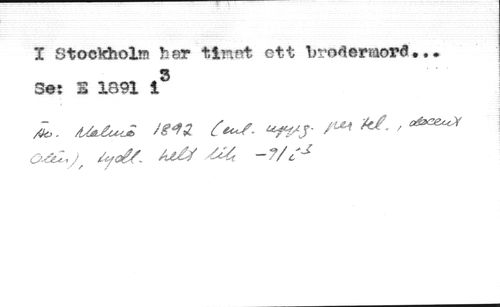 I Stockholm har timat ett brodermord...
Se: E 1891 i³
Av. Malmö 1892 (enl. uppg. per tel., docent
Olén), tydl. helt lik -91 i³